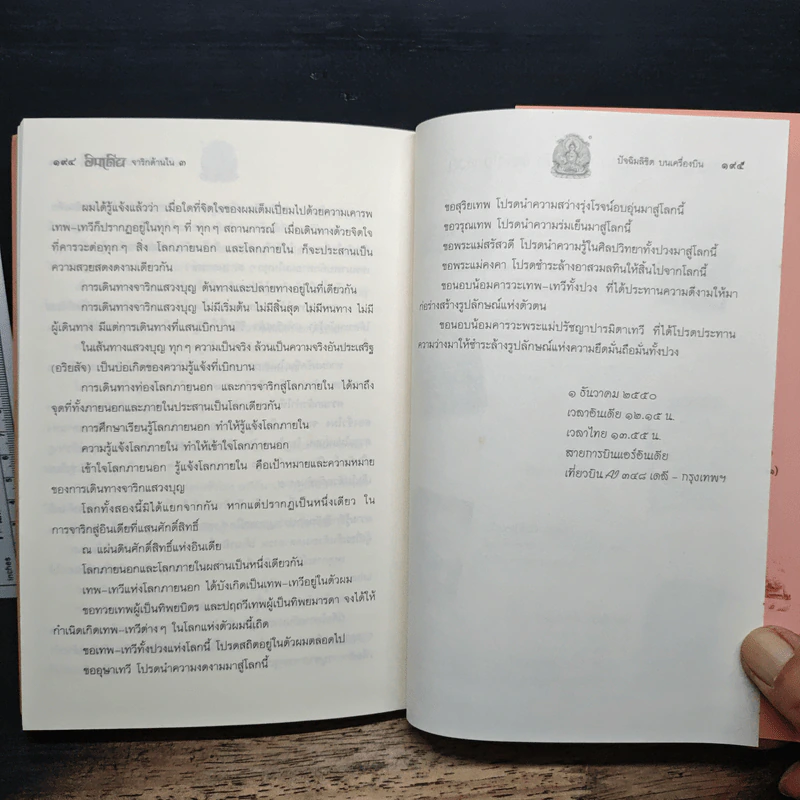 ๑๙๔ อินเดีย จาริกด้านใน ๓
ผมได้รู้แจ้งแล้วว่า เมื่อใดที่จิตใจของผมเต็มเปี่ยมไปด้วยความเคารพ
เทพ–เทวีก็ปรากฏอยู่ในทุกๆ ที่ ทุกๆ สถานการณ์ เมื่อเดินทางด้วยจิตใจ
ที่คารวะต่อทุกๆ สิ่ง โลกภายนอก และโลกภายใน ก็จะประสานเป็น
ความสวยสดงดงามเดียวกัน
การเดินทางจาริกแสวงบุญ ต้นทางและปลายทางอยู่ในที่เดียวกัน
การเดินทางจาริกแสวงบุญ ไม่มีเริ่มต้น ไม่มีสิ้นสุด ไม่มีหนทาง ไม่มี
ผู้เดินทาง มีแต่การเดินทางที่แสนเบิกบาน
ในเส้นทางแสวงบุญ ทุกๆ ความเป็นจริง ล้วนเป็นความจริงอันประเสริฐ
(อริยสัจ) เป็นบ่อเกิดของความรู้แจ้งที่เบิกบาน
การเดินทางท่องโลกภายนอก และการจาริกสู่โลกภายใน ได้มาถึง
จุดที่ทั้งภายนอกและภายในประสานเป็นโลกเดียวกัน
การศึกษาเรียนรู้โลกภายนอก ทำให้รู้แจ้งโลกภายใน
ความรู้แจ้งโลกภายใน ทำให้เข้าใจโลกภายนอก
เข้าใจโลกภายนอก รู้แจ้งโลกภายใน คือเป้าหมายและความหมาย
ของการเดินทางจาริกแสวงบุญ
โลกทั้งสองนี้มิได้แยกจากกัน หากแต่ปรากฏเป็นหนึ่งเดียว ใน
การจาริกสู่อินเดียที่แสนศักดิ์สิทธิ์
ณ แผ่นดินศักดิ์สิทธิ์แห่งอินเดีย
โลกภายนอกและโลกภายในผสานเป็นหนึ่งเดียวกัน
เทพ–เทวีแห่งโลกภายนอก ได้บังเกิดเป็นเทพ–เทวีอยู่ในตัวผม
ขอทวยเทพผู้เป็นทิพยบิดร และปฤถวีเทพผู้เป็นทิพยมารดา จงได้ให้
กำเนิดเกิดเทพ–เทวีต่างๆ ในโลกแห่งตัวผมนี้เถิด
ขอเทพ–เทวีทั้งปวงแห่งโลกนี้ โปรดสถิตอยู่ในตัวผมตลอดไป
ขออุษาเทวี โปรดนำความงดงามมาสู่โลกนี้
ปัจฉิมลิขิต บนเครื่องบิน ๑๙๕
ขอสุริยเทพ โปรดนำความสว่างรุ่งโรจน์อบอุ่นมาสู่โลกนี้
ขอวรุณเทพ โปรดนำความร่มเย็นมาสู่โลกนี้
ขอพระแม่สรัสวดี โปรดนำความรู้ในศิลปวิทยาทั้งปวงมาสู่โลกนี้
ขอพระแม่คงคา โปรดชำระล้างอาสวมลทินให้สิ้นไปจากโลกนี้
ขอนอบน้อมคารวะเทพ–เทวีทั้งปวง ที่ได้ประทานความดีงามให้มา
ก่อร่างสร้างรูปลักษณ์แห่งตัวตน
ขอนอบน้อมคารวะพระแม่ปรัชญาปารมิตาเทวี ที่ได้โปรดประทาน
ความว่างมาให้ชำระล้างรูปลักษณ์แห่งความยึดมั่นถือมั่นทั้งปวง
๑ ธันวาคม ๒๕๕๐
เวลาอินเดีย ๑๒.๑๕ น.
เวลาไทย ๑๓.๕๕ น.
สายการบินแอร์อินเดีย
เที่ยวบิน AI ๓๔๘ เดลี – กรุงเทพฯ
inches